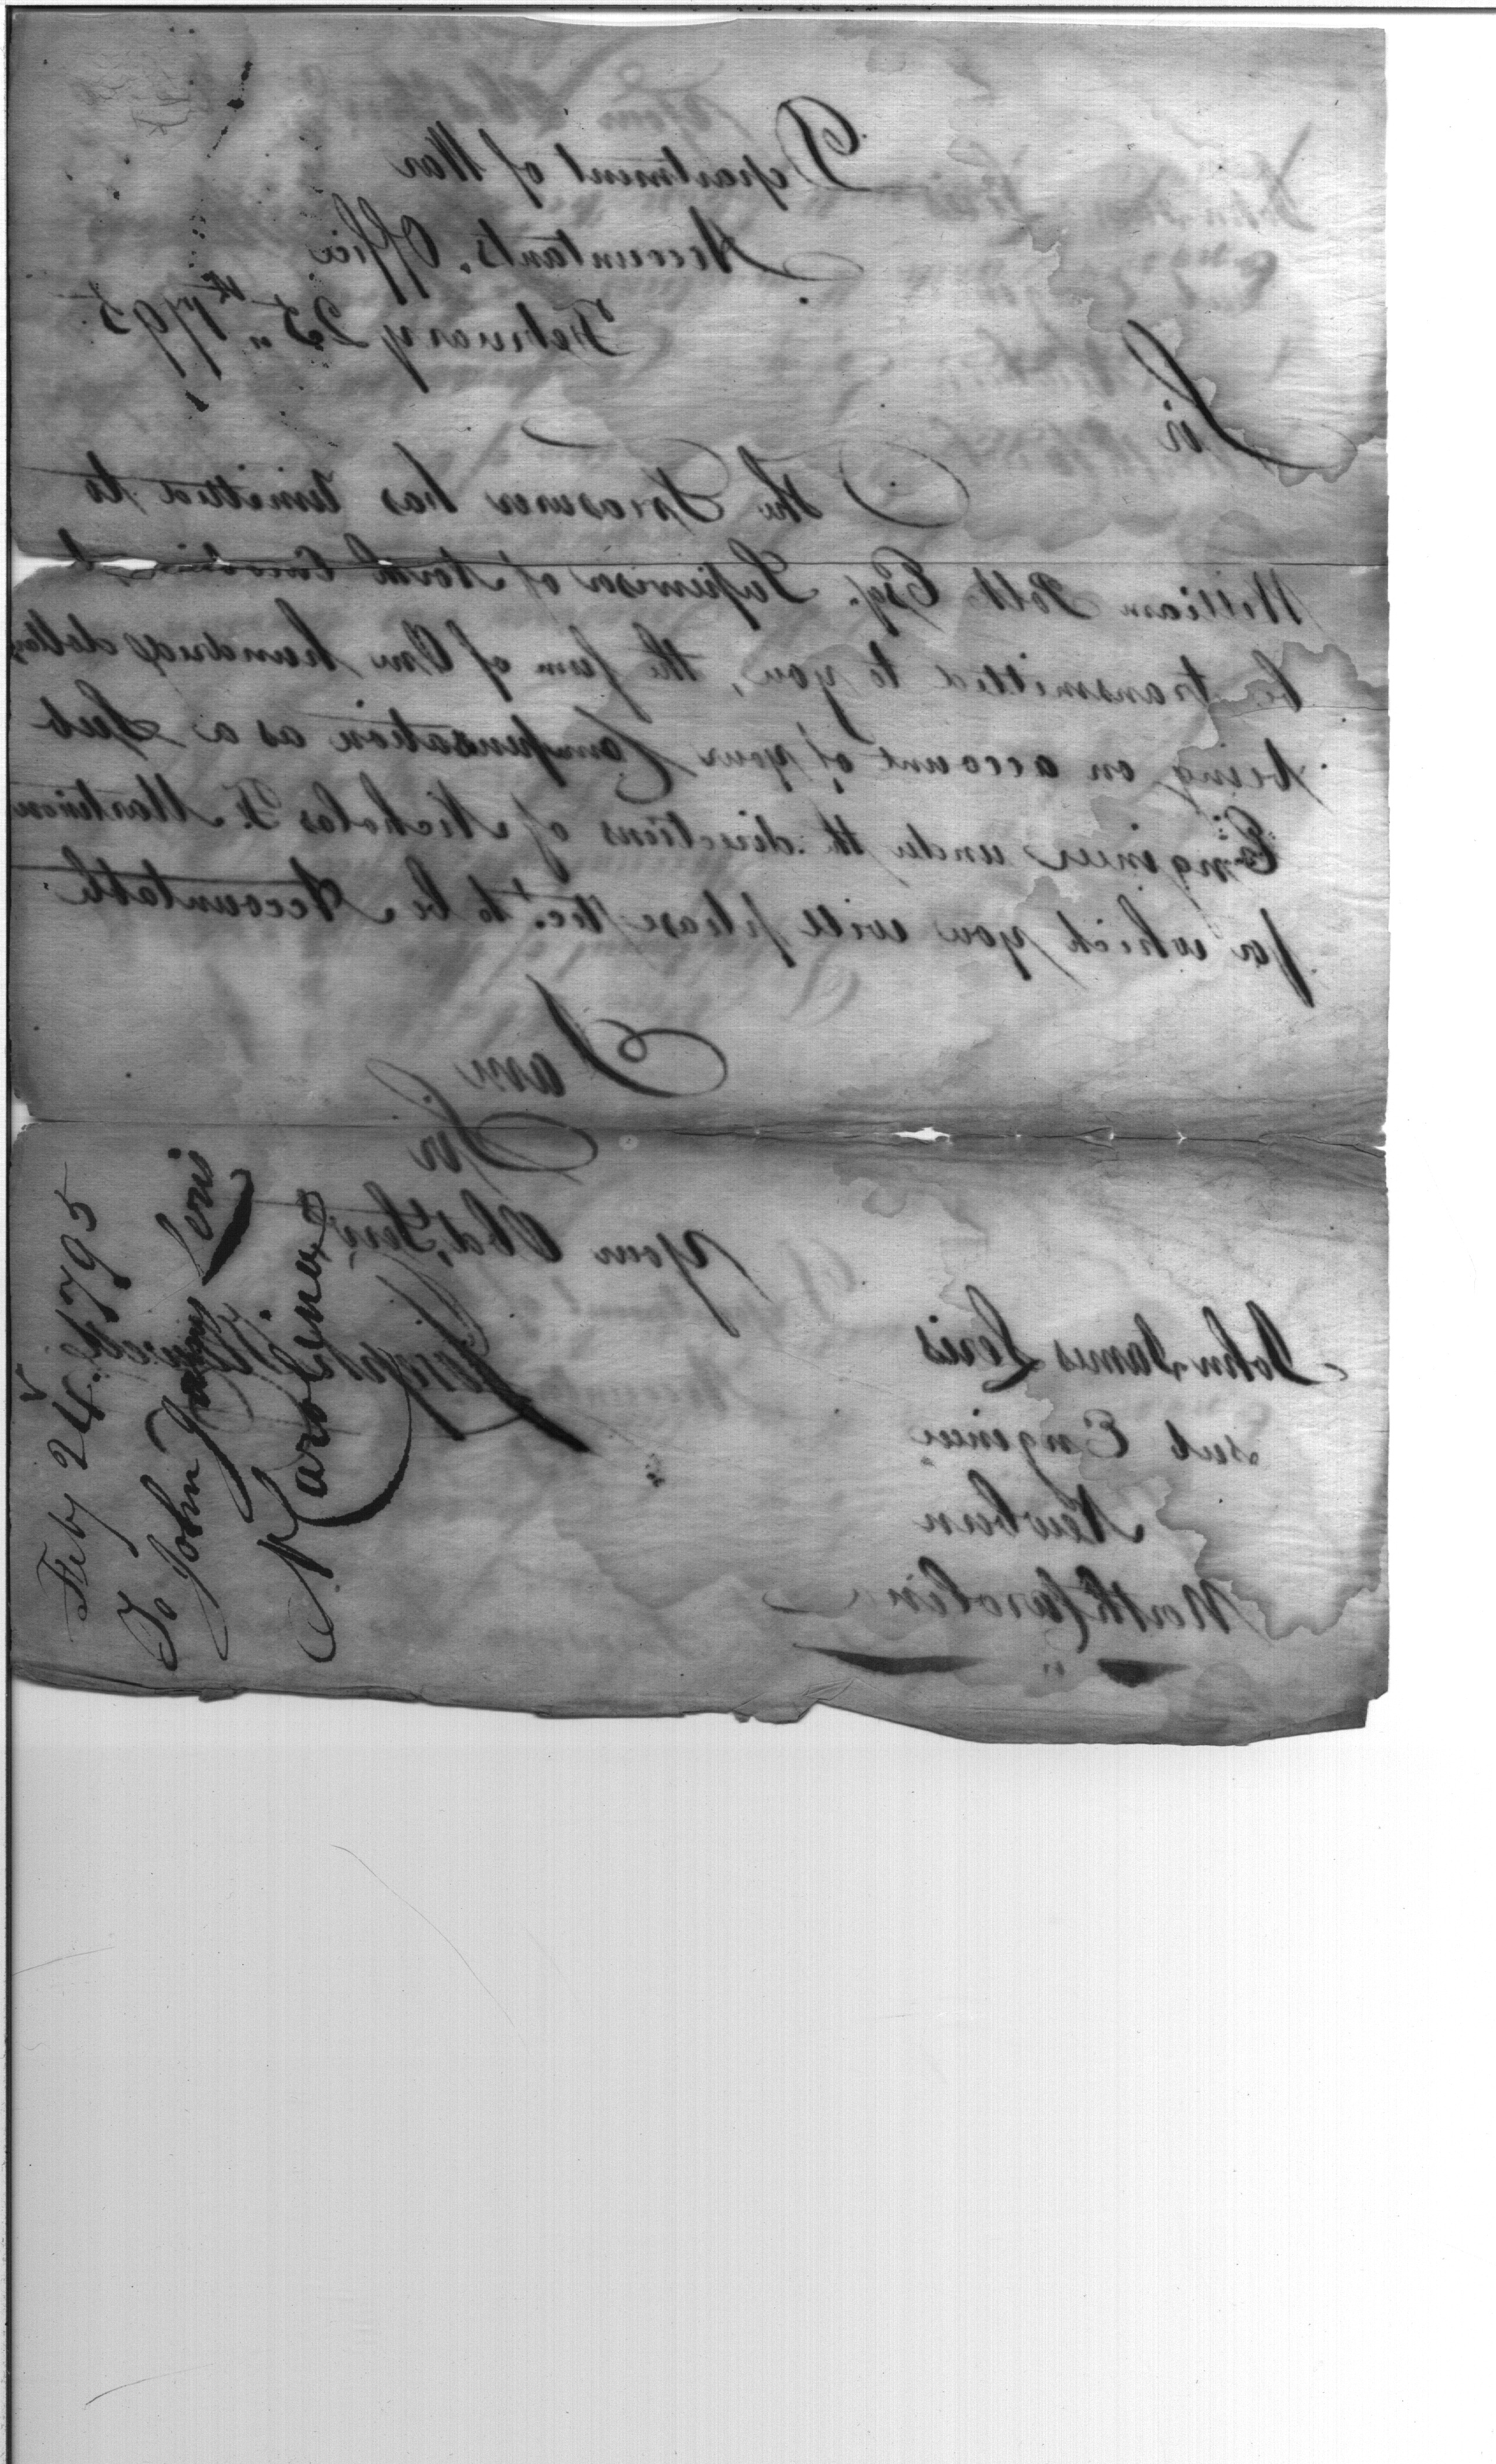 Department of War
Accountants. Office
February 25th 1795
Sir
The Treasurer has remitted to
William Polk Esq. Supervisor of North Carolina to
be transmitted to you, the sum of One hundred dollars
being on account of your Compensation as a Sub
Engineer under the directions of Nicholas F. Martinon
for which you will please Sir to be Accountable
I am
Sir
Your Obdt. Servt
Joseph Howell
John James Loris
sub Engineer
Newbern
North Carolina
Feby 24. 1795
To John James Loris
N Carolina